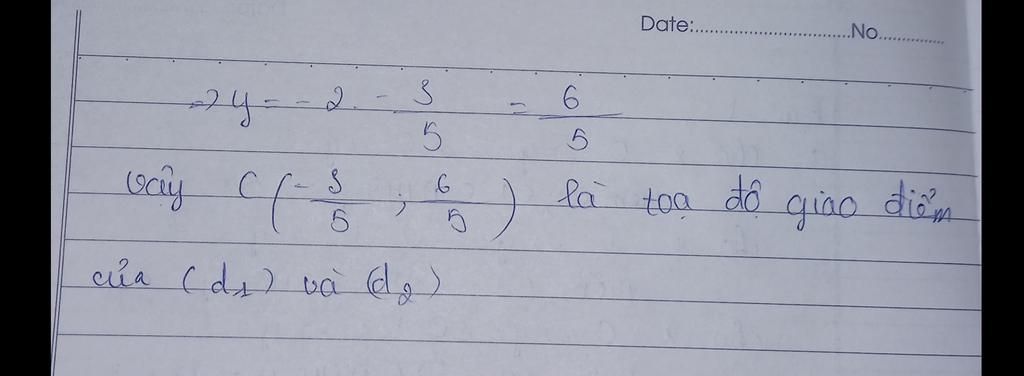 Date:..............................No..............
=> y = -2. -3/5 = 6/5
vậy C (-3/5 ; 6/5) là toạ độ giao điểm
của (d1) và (d2)